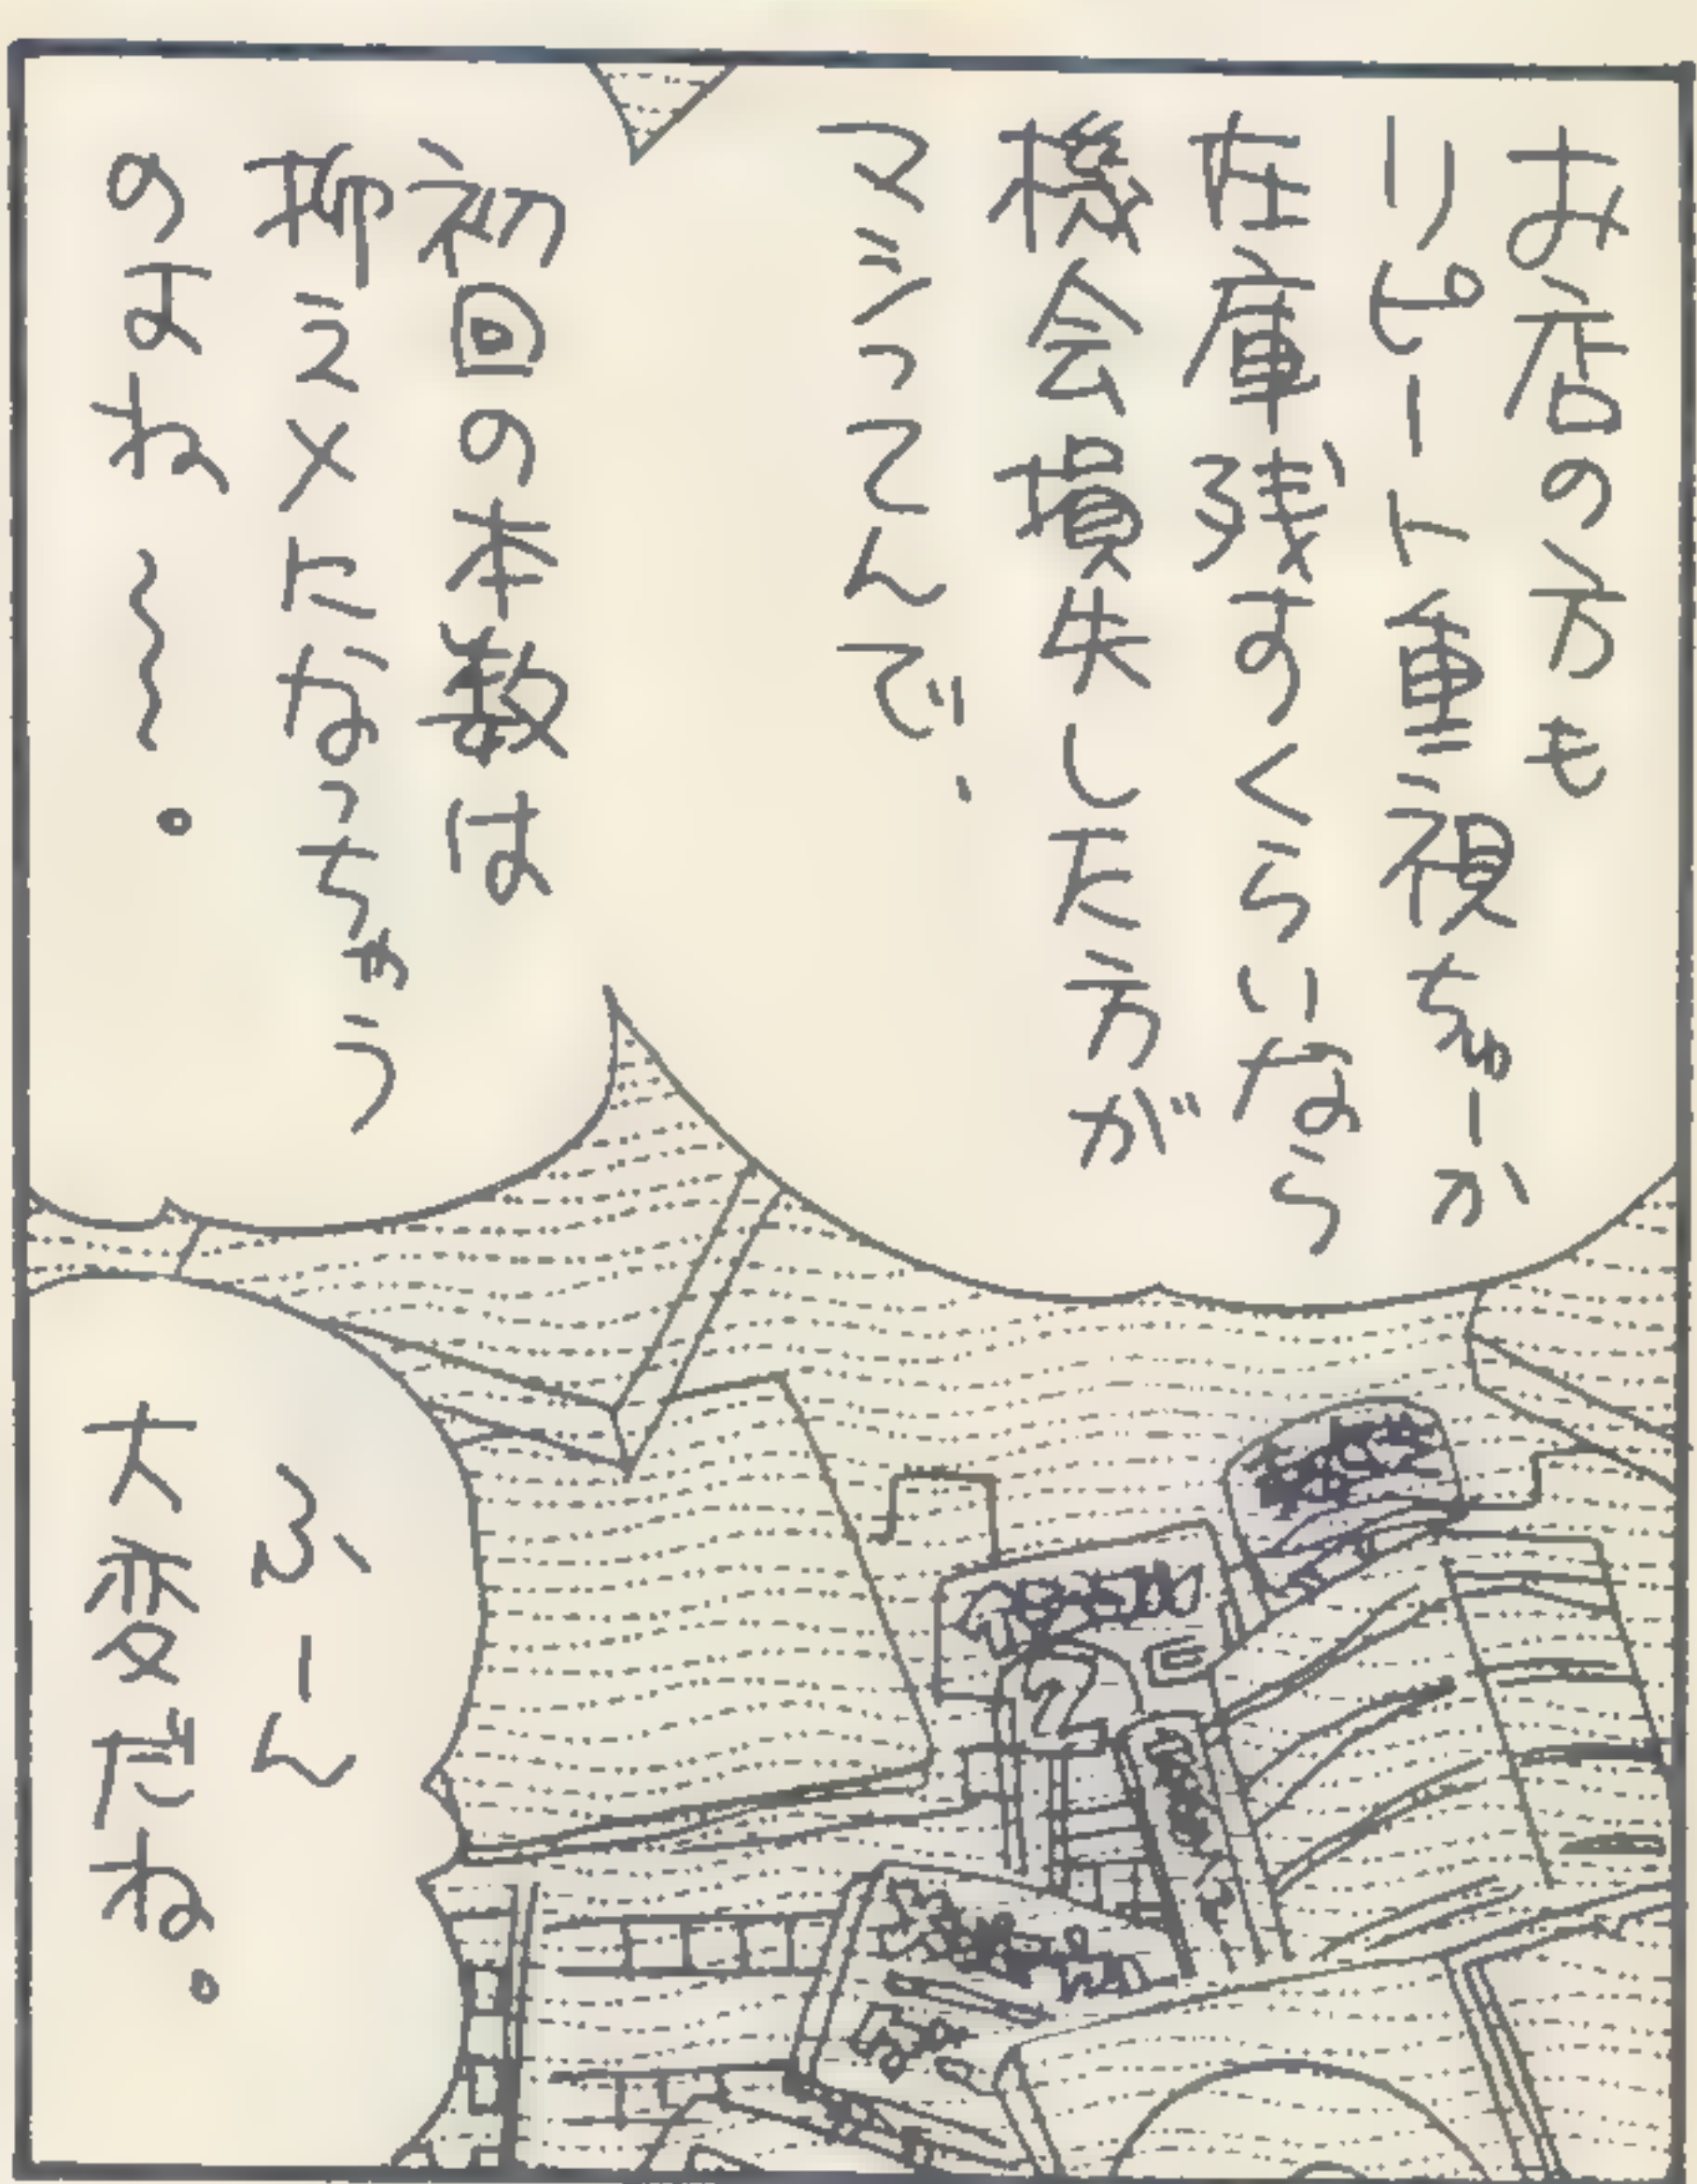 お店の方も
リピート重視ちゅーか
在庫残すくらいなら
機会損失した方が
マシってんで、
初回の本数は
抑えメになっちゃう
のよね〜〜。
ふーん
大変だね。